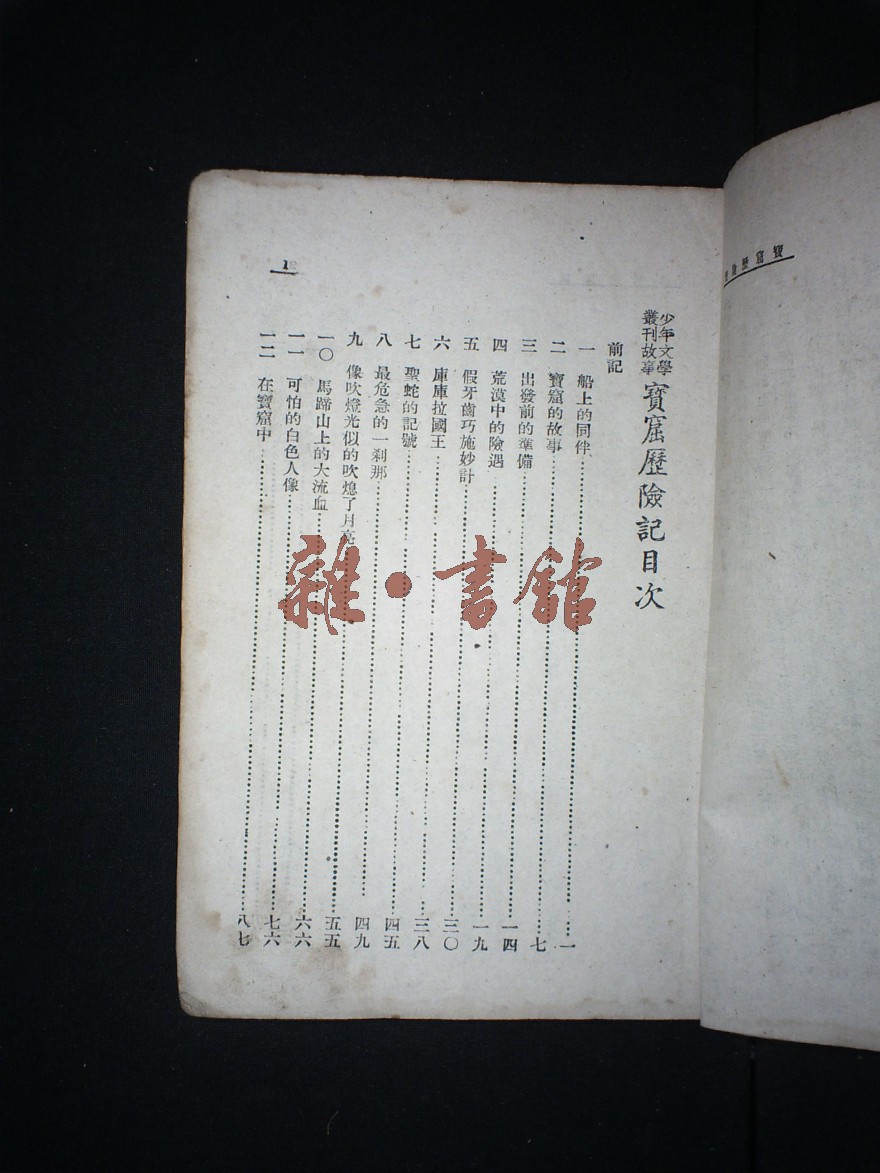 寶窟歷險
少年文學
叢刊故事
寶窟歷險記目次
前記
一 船上的同伴……一
二 寶窟的故事……七
三 出發前的準備……一四
四 荒漠中的險遇……一九
五 假牙齒巧施妙計……三〇
六 庫庫拉國王……三八
七 聖蛇的記號……四五
八 最危急的一剎那……四九
九 像吹燈光似的吹熄了月亮……五五
一〇 馬蹄山上的大流血……六六
一一 可怕的白色人像……七六
一二 在寶窟中……八七
1
雜·書館